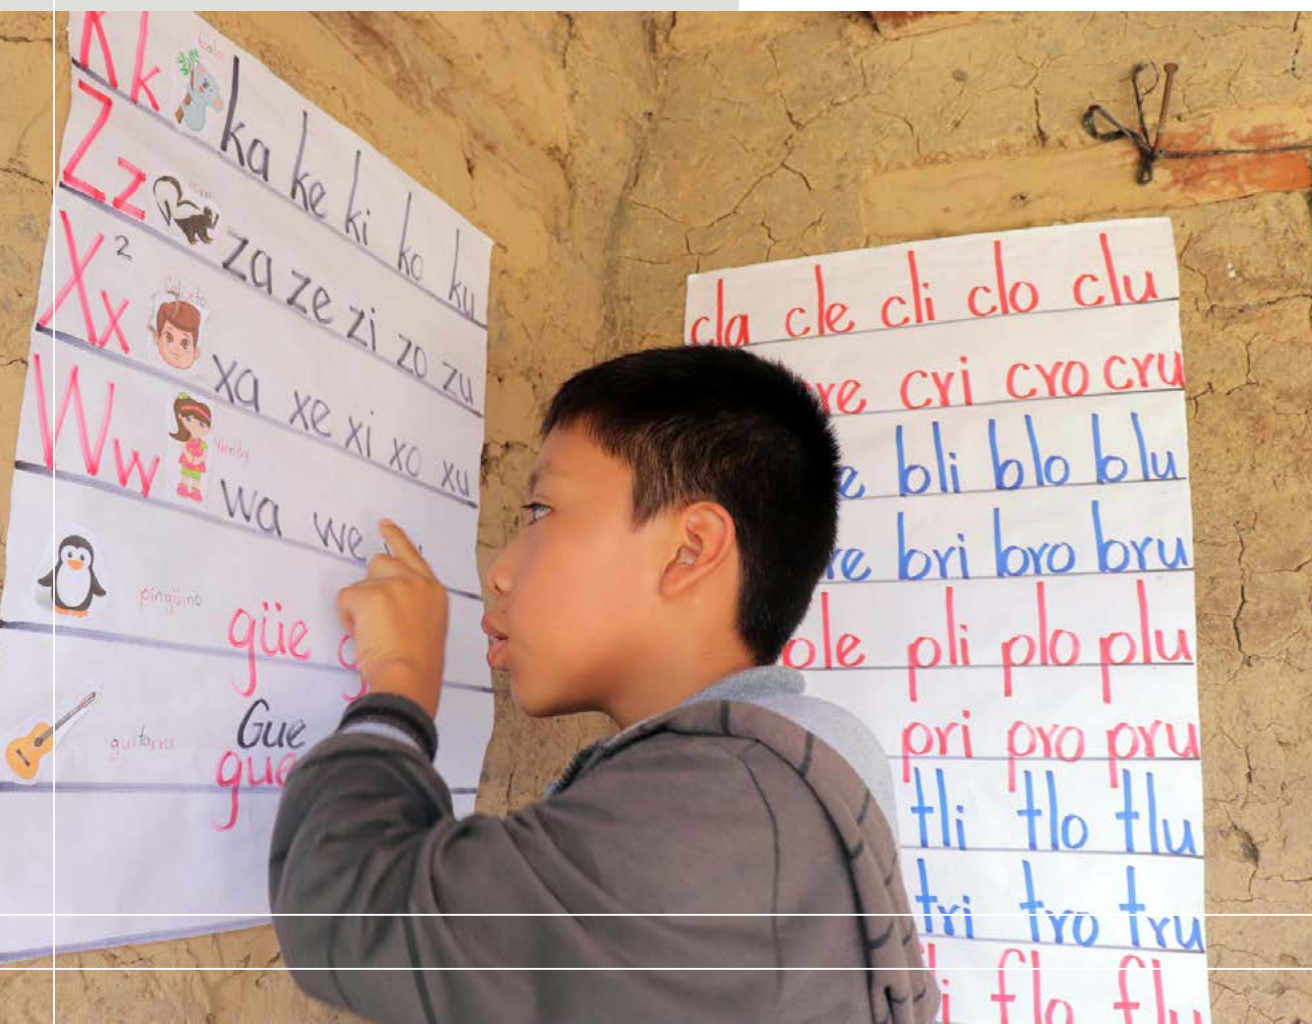 Kk koala ka ke ki ko ku
Zz za ze zi zo zu
Xx 2 xa xe xi xo xu
Ww Wendy wa we
pingüino güe
guitarra Gue
gue
cla cle cli clo clu
cri cro cru
bli blo blu
bri bro bru
pli plo plu
pri pro pru
tli tlo tlu
tri tro tru
flo flu